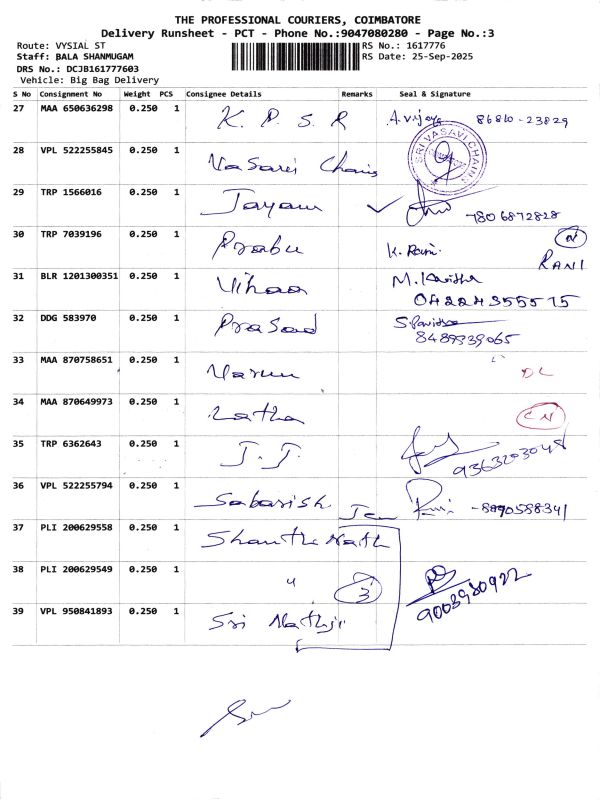 THE PROFESSIONAL COURIERS, COIMBATORE
Delivery Runsheet - PCT - Phone No.:9047080280 - Page No.:3
Route: VYSIAL ST RS No.: 1617776
Staff: BALA SHANMUGAM RS Date: 25-Sep-2025
DRS No.: DCJB161777603
Vehicle: Big Bag Delivery
S No Consignment No Weight PCS Consignee Details Remarks Seal & Signature
27 MAA 650636298 0.250 1 K. P. S. R A.vijaya 86810-23829
28 VPL 522255845 0.250 1 Vasavi Chains SRI VASAVI CHAINS
29 TRP 1566016 0.250 1 Jayam ✓ 7806872828
30 TRP 7039196 0.250 1 Prabu K. Rani N RANI
31 BLR 1201300351 0.250 1 Vihaa M. Kavitha
04224355515
32 DDG 583970 0.250 1 Prasad S.Pavithra
8489939065
33 MAA 870758651 0.250 1 Varun DL
34 MAA 870649973 0.250 1 Latha CN
35 TRP 6362643 0.250 1 J. J. 9363203048
36 VPL 522255794 0.250 1 Sabarish Jem
37 PLI 200629558 0.250 1 Shanthi Nath
38 PLI 200629549 0.250 1 " 3 9003980922
39 VPL 950841893 0.250 1 Sri Nathji